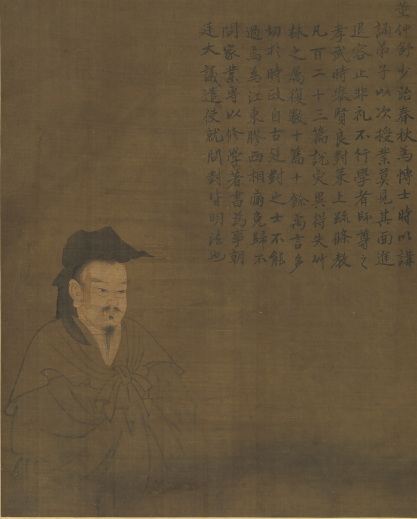 董仲舒少治春秋為博士時以講
誦弟子以次授業莫見其面進
退容止非礼不行學者師尊之
孝武時舉賢良對策上疏條教
凡百二十三篇說灾異得失竹
林之屬復數十篇十餘萬言多
切於時政自古廷對之士不能
過焉為江東膠西相病免歸不
問家業專以修學著書為事朝
廷大議遣使就問對皆明法也